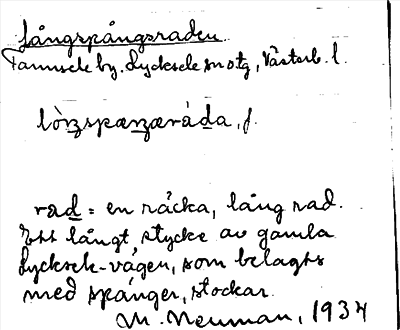 Långspångsraden
Tannsele by. Lycksele sn o tg, Västerb. l.
lòŋspæŋæráda, f.
rad = en räcka, lång rad.
Ett långt stycke av gamla
Lycksele-vägen, som belagts
med spånger, stockar.
M. Neuman, 1934